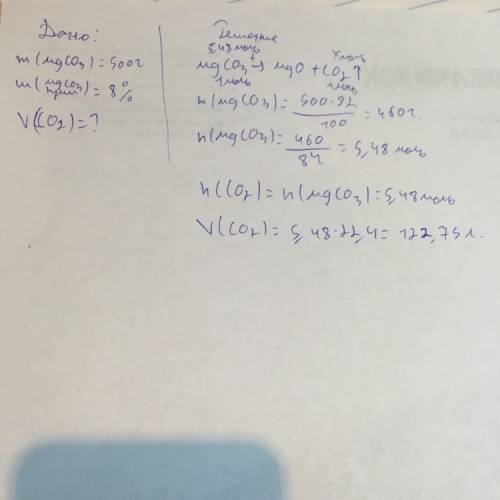 Дано:
m(MgCO3) = 500г
ω(MgCO3 прим) = 8%
V(CO2) = ?
Решение
5,48 моль х моль
MgCO3 t→ MgO + CO2↑
1 моль 1 моль
m(MgCO3) = 500·92/100 = 460г.
n(MgCO3) = 460/84 = 5,48 моль
n(CO2) = n(MgCO3) = 5,48 моль
V(CO2) = 5,48·22,4 = 122,75 л.